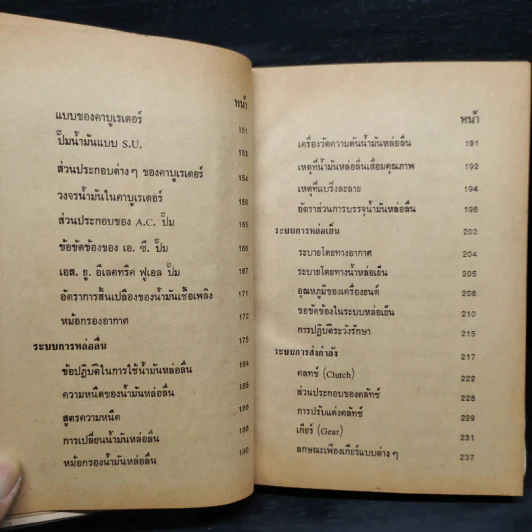 หน้า
แบบของคาบูเรเตอร์ 151
ปั๊มน้ำมันแบบ S.U. 153
ส่วนประกอบต่าง ๆ ของคาบูเรเตอร์ 154
วงจรน้ำมันในคาบูเรเตอร์ 159
ส่วนประกอบของ A.C. ปั๊ม 165
ข้อขัดข้องของ เอ. ซี. ปั๊ม 166
เอส. ยู. อีเลคทริค ฟูเอล ปั๊ม 167
อัตราการสิ้นเปลืองของน้ำมันเชื้อเพลิง 171
หม้อกรองอากาศ 172
ระบบการหล่อลื่น 175
ข้อปฏิบัติในการใช้น้ำมันหล่อลื่น 184
ความหนืดของน้ำมันหล่อลื่น 186
สูตรความหนืด 186
การเปลี่ยนน้ำมันหล่อลื่น 188
หม้อกรองน้ำมันหล่อลื่น 190
หน้า
เครื่องวัดความดันน้ำมันหล่อลื่น 191
เหตุที่น้ำมันหล่อลื่นเสื่อมคุณภาพ 192
เหตุที่แบริ่งละลาย 194
อัตราส่วนการบรรจุน้ำมันหล่อลื่น 196
ระบบการหล่อเย็น 202
ระบายโดยทางอากาศ 204
ระบายโดยทางน้ำหล่อเย็น 205
อุณหภูมิของเครื่องยนต์ 206
ขอขัดข้องในระบบหล่อเย็น 210
การปฏิบัติระวังรักษา 215
ระบบการส่งกำลัง 217
คลทซ์ (Clutch) 222
ส่วนประกอบของคลัทซ์ 228
การปรับแต่งคลัทซ์ 229
เกียร์ (Gear) 231
ลกษณะเฟืองเกียร์แบบต่าง ๆ 237